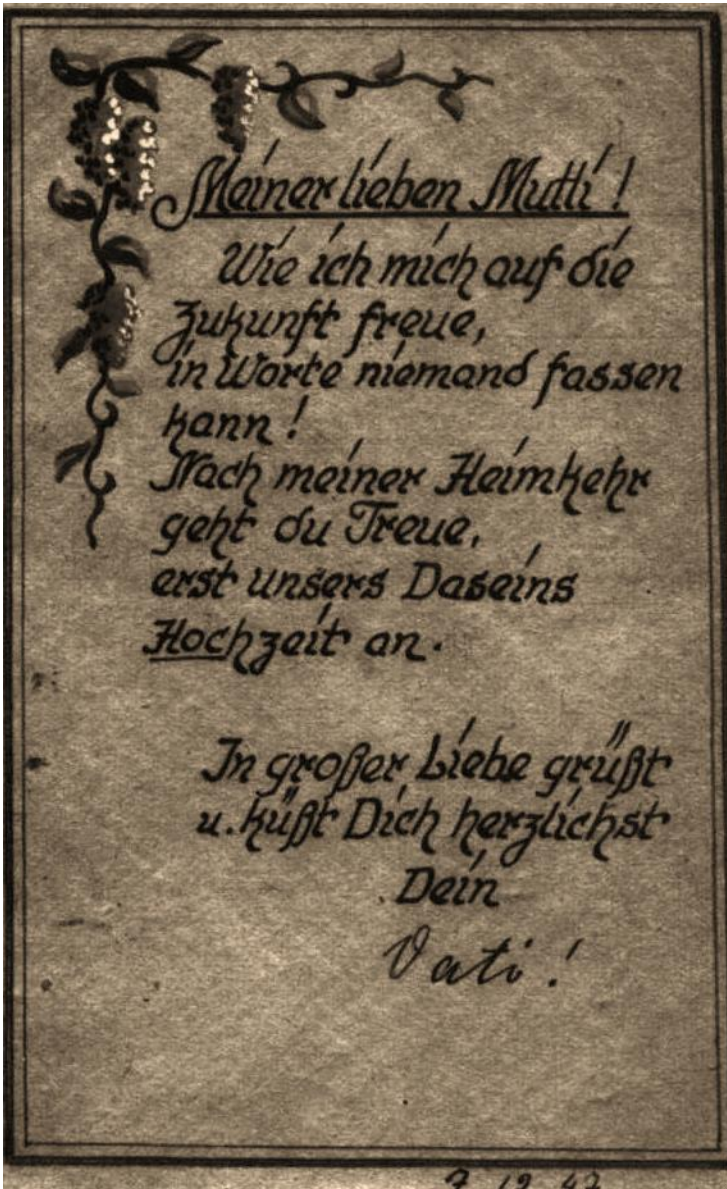 Meiner lieben Mutti!
Wie ich mich auf die
Zukunft freue,
in Worte niemand fassen
kann!
Nach meiner Heimkehr
geht du Treue,
erst unsers Daseins
Hochzeit an.
In großer Liebe grüßt
u. küßt Dich herzlichst
Dein
Vati!